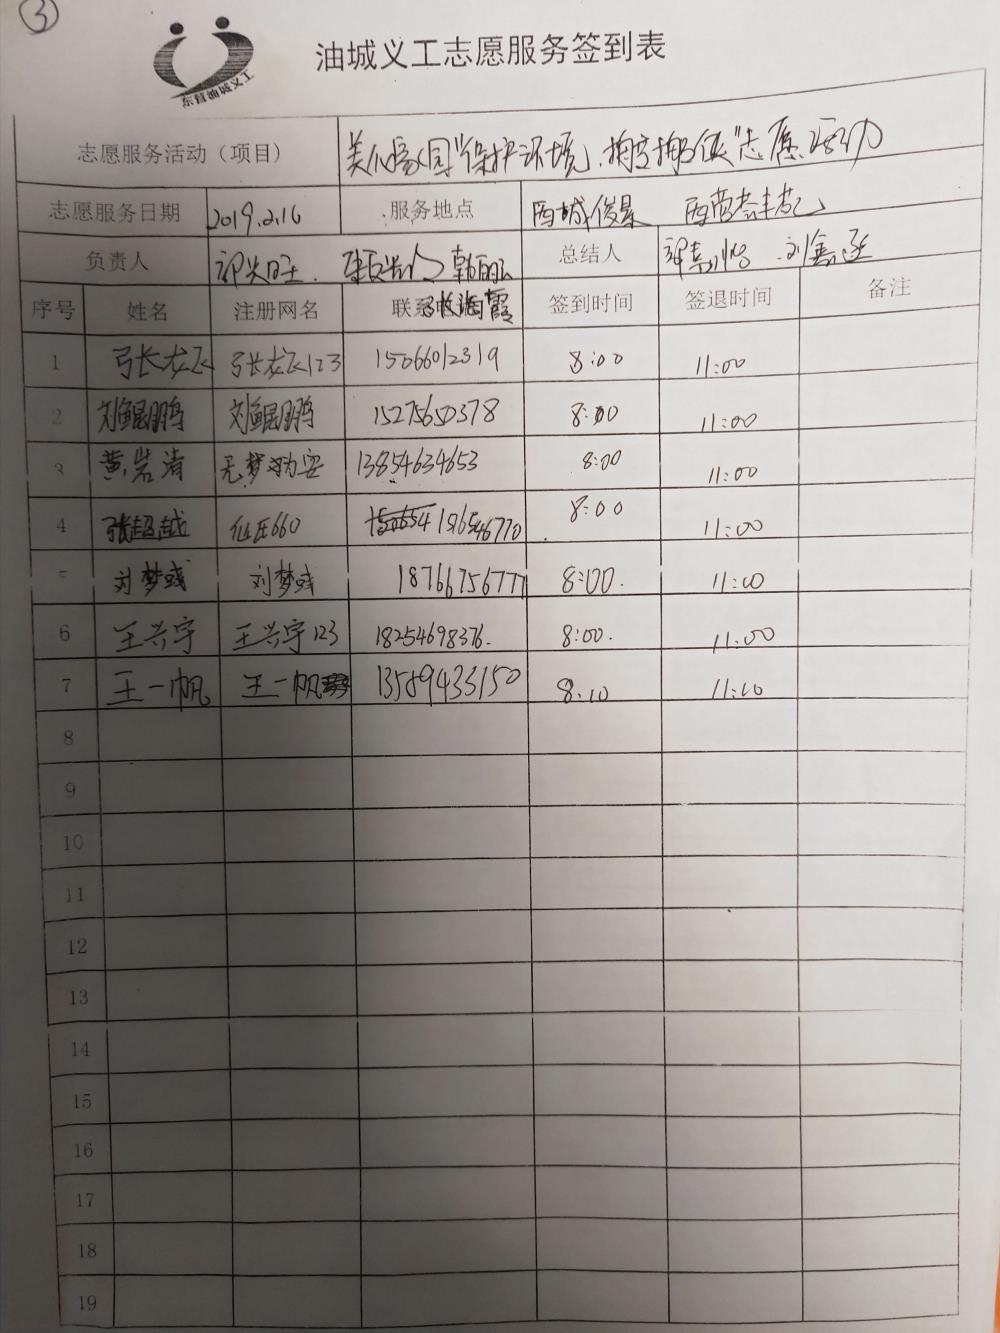 3
东营油城义工
油城义工志愿服务签到表
志愿服务活动（项目） 美化家园"保护环境、 志愿活动
志愿服务日期 2019.2.16 服务地点 西城俊景
负责人 总结人
序号 姓名 注册网名 联系 海霞 签到时间 签退时间 备注
1 张龙飞 张龙飞123 15066012319 8:00 11:00
2 刘鲲鹏 刘鲲鹏 15275650378 8:00 11:00
3 黄岩清 无梦为安 13854634653 8:00 11:00
4 张超越 8:00 11:00
5 刘梦彧 刘梦彧 18766756777 8:00. 11:00
6 王兴宇 王兴宇123 18254698376. 8:00. 11:00
7 王一帆 王一帆 13589433150 8:10 11:10
8
9
10
11
12
13
14
15
16
17
18
19